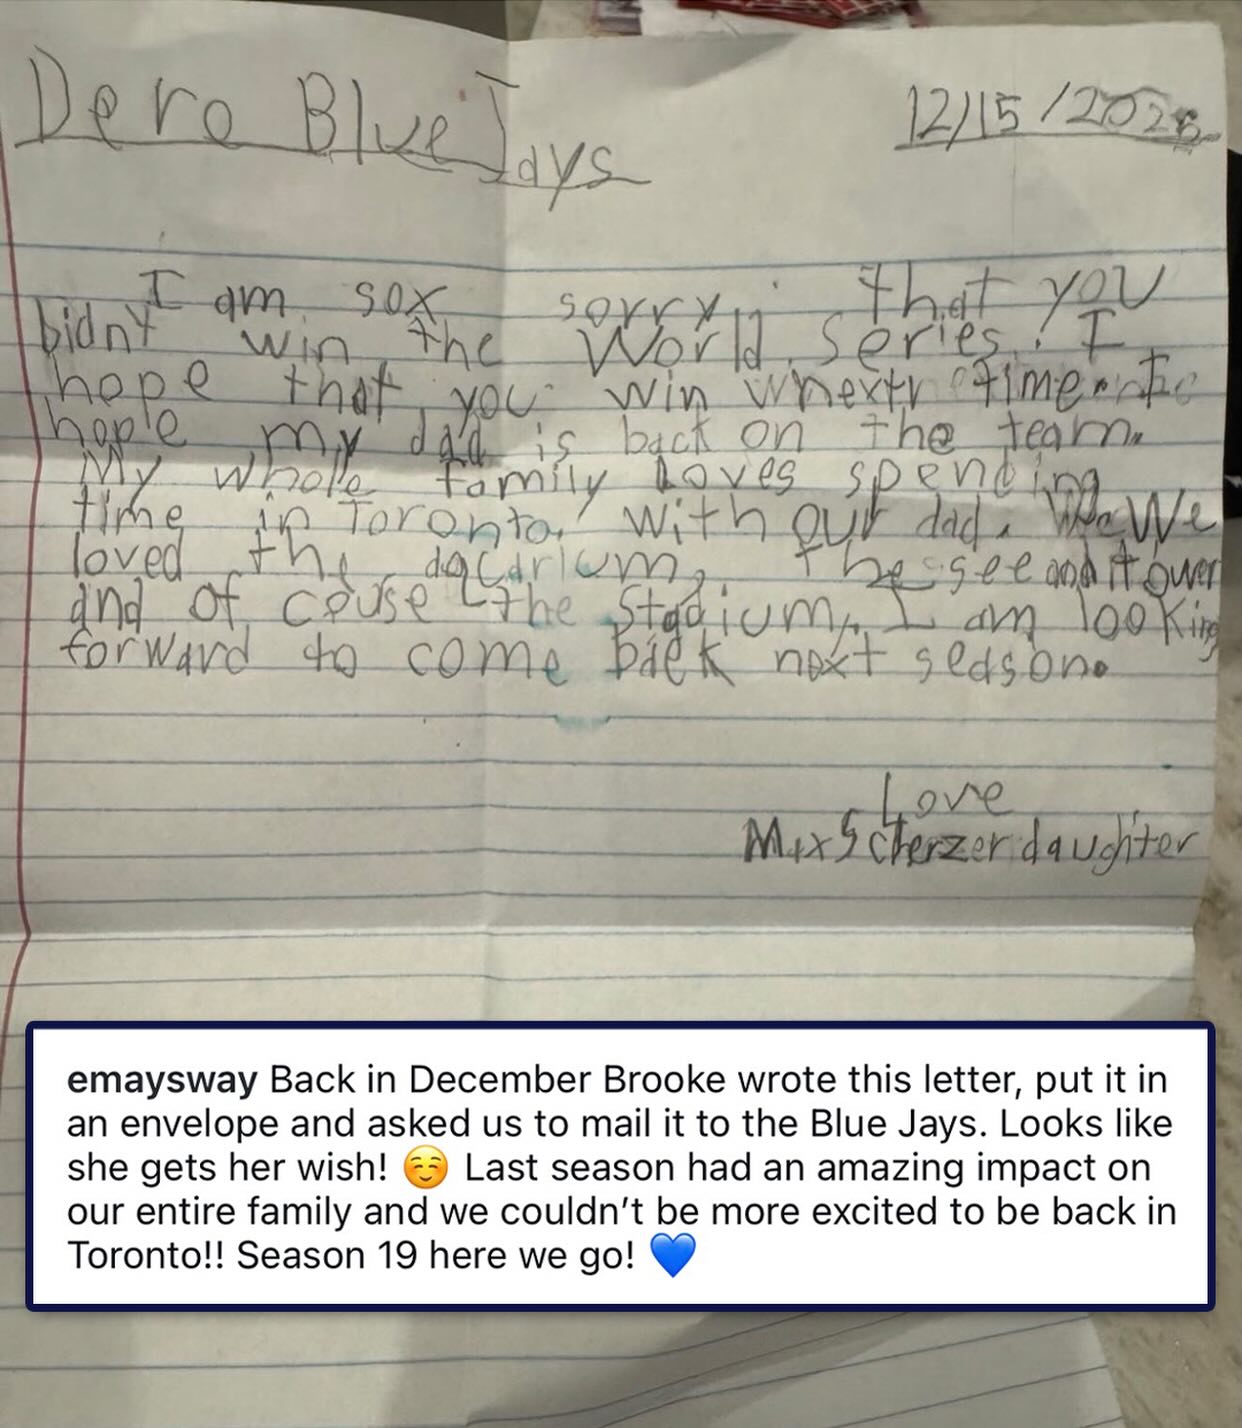 Dero Blue Jays
12/15/2026
I am sox sorry that you
bidnt win the World series. I
hope that you win whextr time
hople my dad is back on the team.
My whole family Loves spending
time in Toronto. with our dad. We
loved the daqcarium, the see and it ower
and of couse the Stadium, I am looking
forward to come back next season.
Love
Max Scherzer daughter
emaysway Back in December Brooke wrote this letter, put it in
an envelope and asked us to mail it to the Blue Jays. Looks like
she gets her wish! ☺️ Last season had an amazing impact on
our entire family and we couldn’t be more excited to be back in
Toronto!! Season 19 here we go! 💙